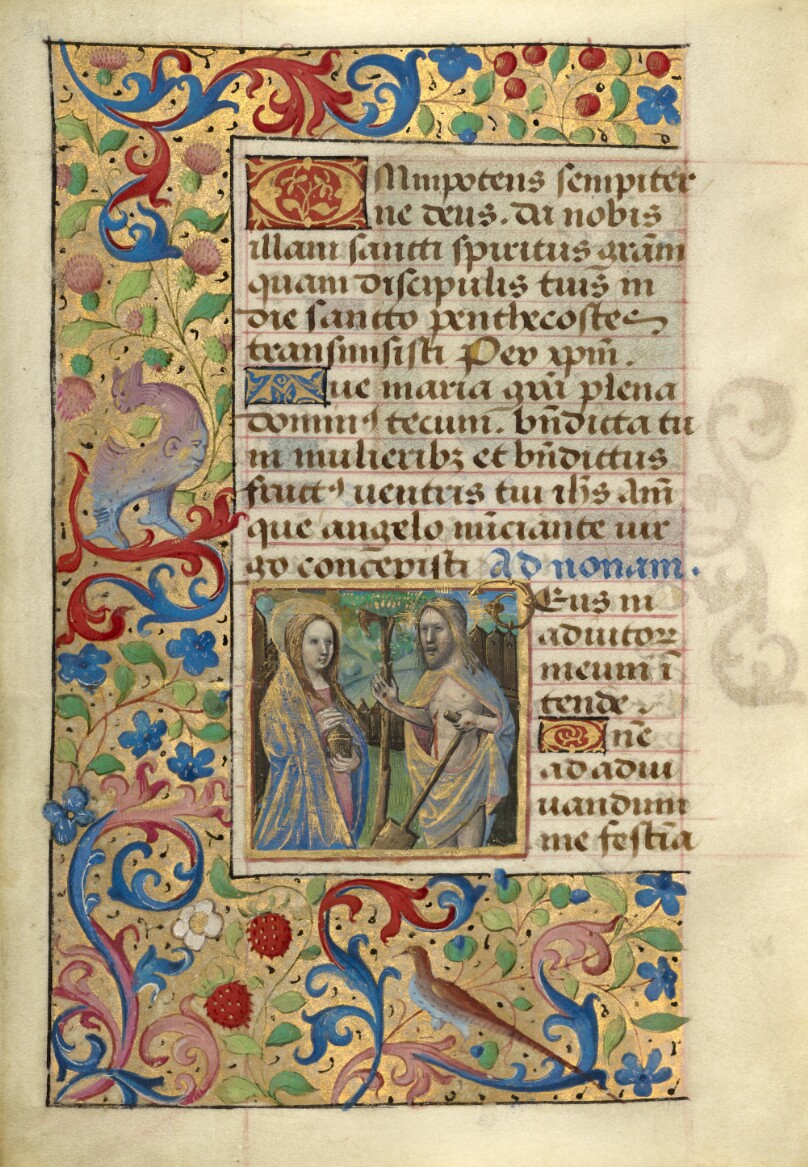 Omnipotens sempiter
ne deus. da nobis
illam sancti spiritus grãm
quam discipulis tuis in
die sancto penthecostes
transmisisti Per xpm̃.
Aue maria gr̃a plena
dominꝰ tecum. bñdicta tu
in mulieribꝫ et bñdictus
fructꝰ uentris tui ihs Am̃
que angelo nũciante uir
go concepisti Ad nonam.
Deus in
adiutoꝝ
meum ĩ
tende.
Dñe
ad adiu
uandum
me festĩa